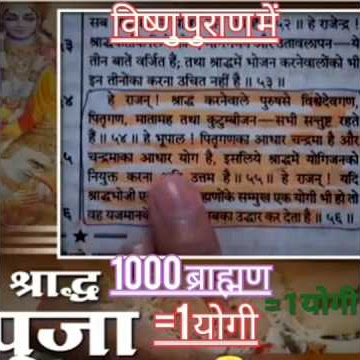 विष्णुपुराण में
सब ॥ ५२ ॥ हे राजेन्द्र !
तीन बातें वर्जित हैं; तथा श्राद्धमें भोजन करनेवालोंको भी
इन तीनोंका करना उचित नहीं है ॥ ५३ ॥
हे राजन् ! श्राद्ध करनेवाले पुरुषसे विश्वेदेवगण,
पितृगण, मातामह तथा कुटुम्बीजन—सभी सन्तुष्ट रहते
हैं ॥ ५४ ॥ हे भूपाल ! पितृगणका आधार चन्द्रमा है और
चन्द्रमाका आधार योग है, इसलिये श्राद्धमें योगिजनको
नियुक्त करना उत्तम है ॥ ५५ ॥ हे राजन् ! यदि
श्राद्धभोजी सम्मुख एक योगी भी हो तो
वह यजमानके उद्धार कर देता है ॥ ५६ ॥
श्राद्ध 1000 ब्राह्मण
=1योगी
पूजा =1योगी